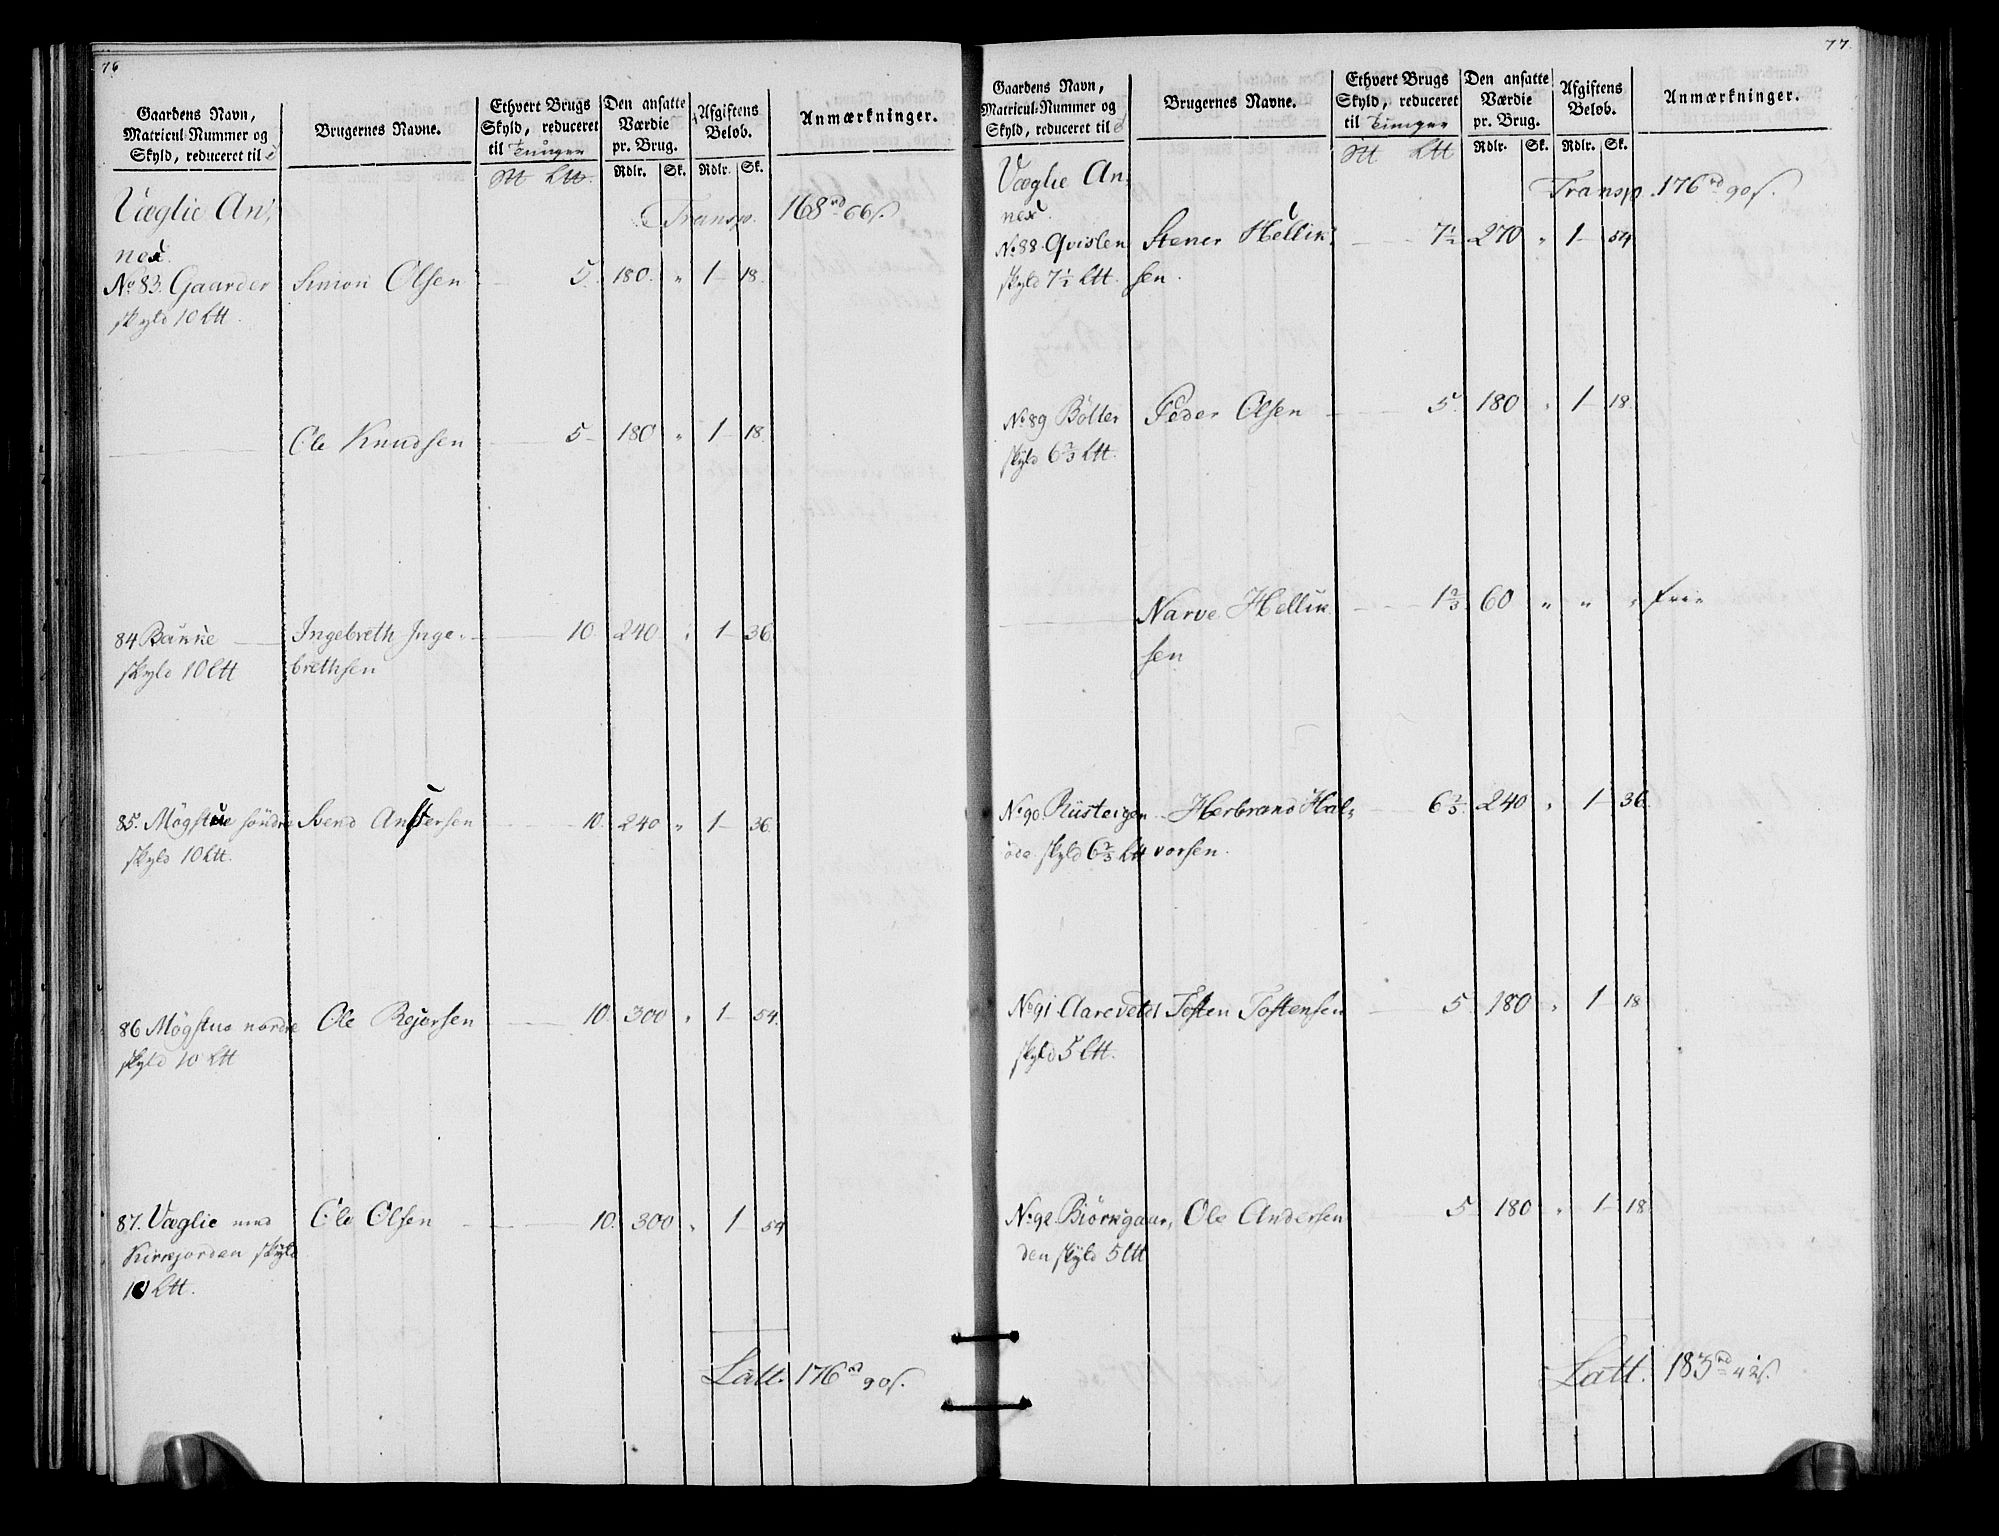 76
Gaardens Navn,
Matricul-Nummer og
Skyld, reduceret til
Brugernes Navne.
Ethvert Brugs
Skyld, reduceret
til Tunger
Den ansatte
Værdie
pr. Brug.
Afgiftens
Beløb.
Anmærkninger.
Rdlr. Sk. Rdlr. Sk.
Væglie An-
nex.
Transp. 168 rd 66 s.
No 83. Gaarder Simon Olsen 5. 180. " 1 - 18.
skyld 10 Ltt.
Ole Knudsen 5 - 180 " 1 - 18.
84 Bønne Ingebreth Inge- 10. 240 " 1 - 36.
skyld 10 Ltt brethsen
85. Møgstue søndre Svend Andersen 10. 240 " 1 - 36.
skyld 10 Ltt.
86 Møgstue nordre Ole Rejersen 10. 300 " 1 - 54.
skyld 10 Ltt
87. Væglie med Ole Olsen 10. 300 " 1 - 54
Kirkjorden skyld
10 Ltt.
Latt. 176 rd 90 s.
77.
Gaardens Navn,
Matricul-Nummer og
Skyld, reduceret til
Brugernes Navne.
Ethvert Brugs
Skyld, reduceret
til Tunger
Den ansatte
Værdie
pr. Brug.
Afgiftens
Beløb.
Anmærkninger.
Rdlr. Sk. Rdlr. Sk.
Væglie An-
nex.
Transp. 176 rd 90 s.
No 88. Qvislen Stener Hellik- 7½ 270 " 1 - 54
skyld 7½ Ltt. sen.
No 89 Bølter Peder Olsen 5. 180 " 1 - 18.
skyld 6⅔ Ltt.
Narve Hellik 1⅔ 60 " " " frie
sen
No 90. Rusteigen Herbrand Hal- 6⅔ 240 " 1 - 36.
øde. skyld 6⅔ Ltt vorsen.
No 91 Aarevold Tosten Tostensen 5 180 " 1 - 18
skyld 5 Ltt.
No 92. Biørkgaar- Ole Andersen 5 180 " 1 - 18
den skyld 5 Ltt
Latt. 183 rd 42 s.